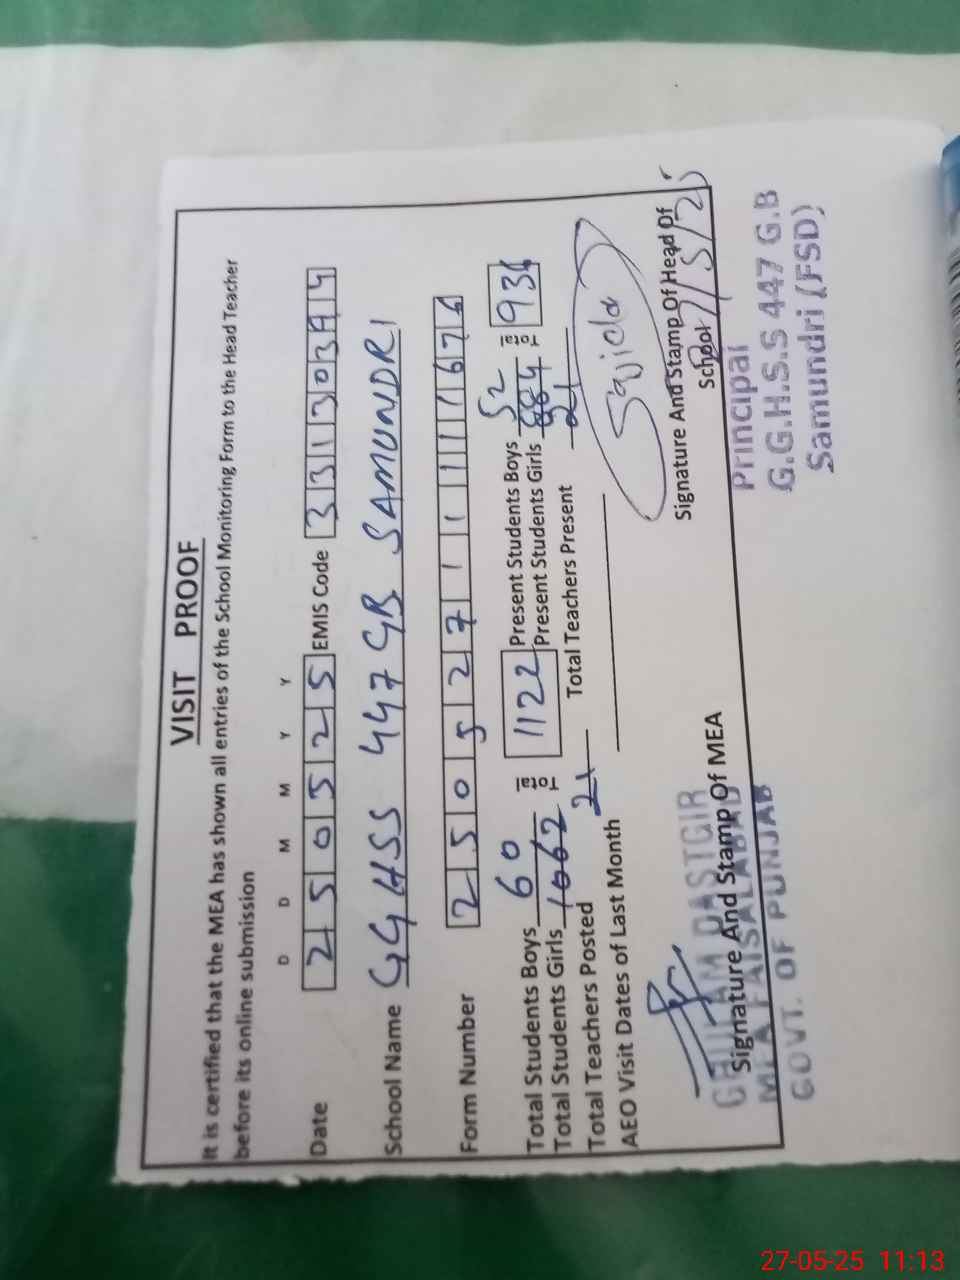 VISIT PROOF
It is certified that the MEA has shown all entries of the School Monitoring Form to the Head Teacher
before its online submission
D D M M Y Y
Date 2 5 0 5 2 5 EMIS Code 3 3 1 3 0 3 9 4
School Name GGHSS 447 GB SAMUNDRI
Form Number 2 5 0 5 2 7 1 1 1 1 1 6 7 6
Total Students Boys 60 1122 Present Students Boys 52
Total Students Girls 1062 Present Students Girls 884 936
Total Teachers Posted 21 Total Teachers Present 21
AEO Visit Dates of Last Month
Sajida
Signature And Stamp Of MEA
Signature And Stamp Of Head Of
School
GHULAM DASTGIR
MEA FAISALABAD
GOVT. OF PUNJAB
Principal
G.G.H.S.S 447 G.B
Samundri (FSD)
27-05-25 11:13